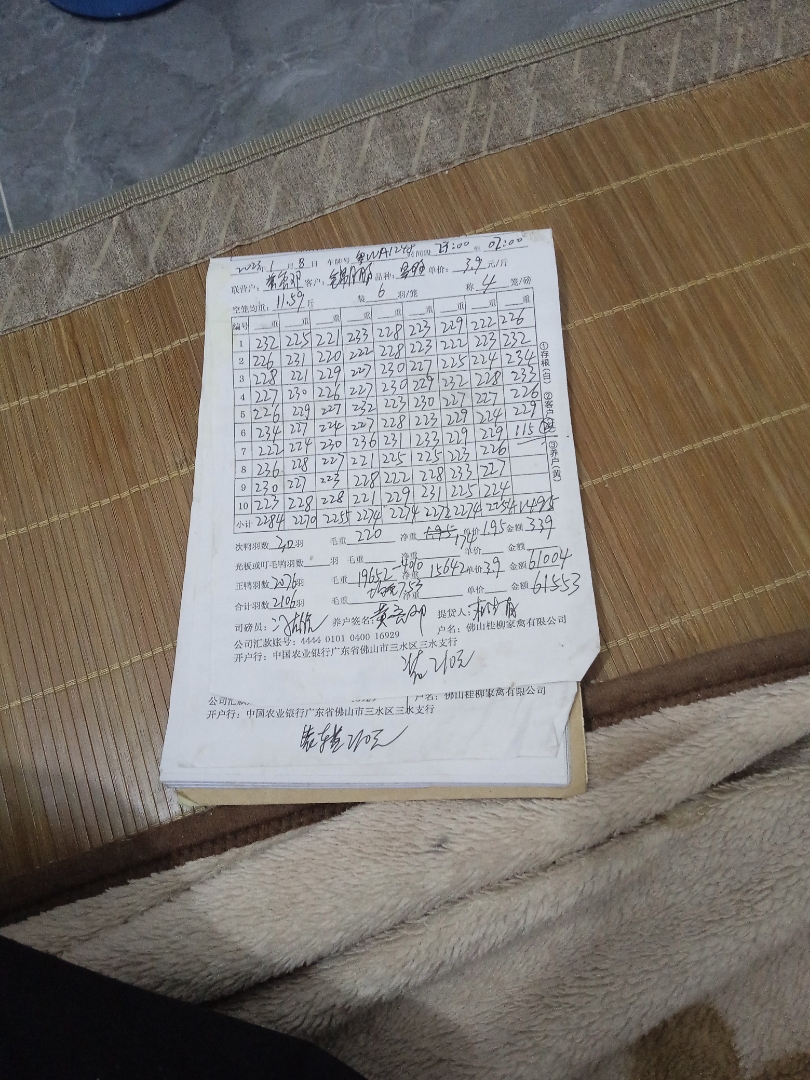 2023年1月8日 车牌号 WA1248 时间段 23:00 至 02:00
联营户: 客户: 品种: 单价: 3.9 元/斤
空笼均重: 11.59 斤 装 6 羽/笼 称 4 笼/磅
编号 重 重 重 重 重 重 重 重 重
1 232 225 221 233 228 223 229 222 226
2 226 231 220 222 228 223 222 223 232
3 228 221 229 227 230 227 225 224 234
4 227 230 226 227 230 229 232 228 233
5 226 229 227 232 223 230 227 227 226
6 234 227 224 227 228 223 229 224 229
7 222 224 230 236 231 233 229 229 115
8 236 228 227 221 225 225 223 226
9 230 227 223 228 222 228 233 227
10 223 228 228 221 229 231 225 224
小计 2284 2270 2255 2274 2274 2272 2274 2254 1495
①存根(白) ②客户 ③养户(黄)
次鸭羽数 30 羽 毛重 220 净重 174 单价 1.95 金额 339
光板或叮毛鸭羽数 羽 毛重 净重 单价 金额
正鸭羽数 2076 羽 毛重 19652 - 4010 净重 15642 单价 3.9 金额 61004
合计羽数 2106 羽 毛重 7.53 净重 单价 金额 61553
司磅员: 养户签名: 提货人:
公司汇款账号: 4444 0101 0400 16929 户名: 佛山桂柳家禽有限公司
开户行: 中国农业银行广东省佛山市三水区三水支行
装 210元
公司汇 户名: 佛山桂柳家禽有限公司
开户行: 中国农业银行广东省佛山市三水区三水支行
210元